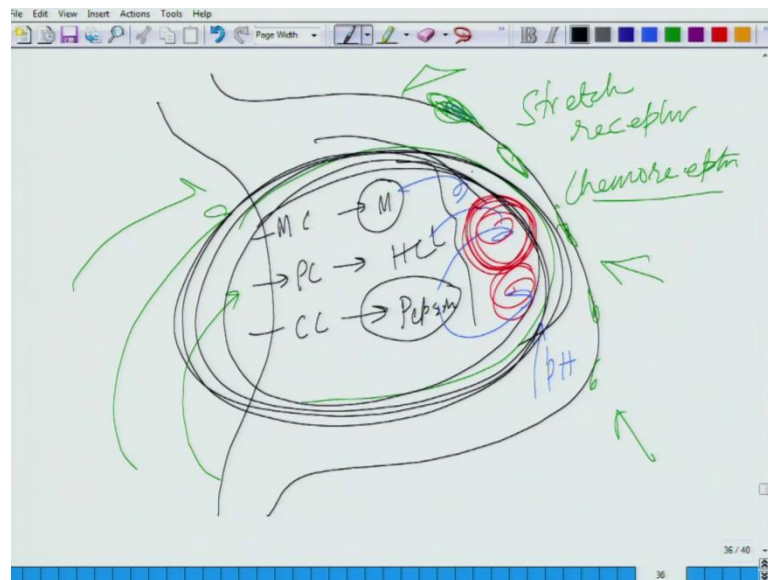 File Edit View Insert Actions Tools Help
Page Width
B I
Stretch
receptor
Chemoreceptn
MC → M
→ PC → HCl
CC → Pepsin
pH
36 / 40
36